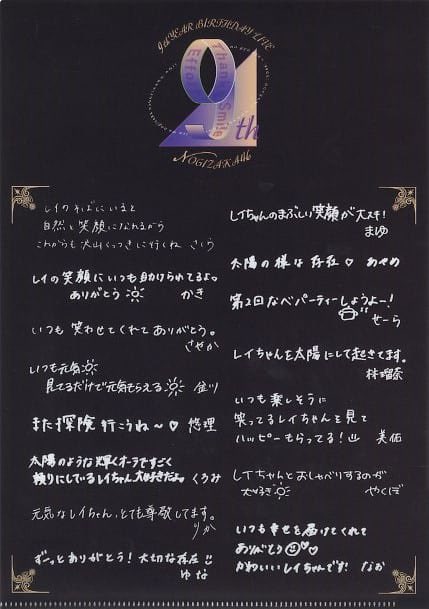 9th YEAR BIRTHDAY LIVE
Thanks Smile
Effort
9th
NOGIZAKA46
レイのそばにいると
自然と笑顔になれるから
これからも沢山くっつきに行くね さくら
レイの笑顔にいつも助けられてるよ。
ありがとう かき
いつも笑わせてくれてありがとう。
さやか
いつも元気
見てるだけで元気もらえる 金川
また探険行こうね〜♡ 悠理
太陽のような輝くオーラですごく
頼りにしているレイちゃん大好きだよ。 くろみ
元気なレイちゃん、とても尊敬してます。
りか
ずーっとありがとう!大切な存在!!
ゆな
レイちゃんのまぶしい笑顔が大スキ!
まゆ
太陽の様な存在♡ あやめ
第2回なべパーティーしようよー!
せーら
レイちゃんを太陽にして起きてます。
林瑠奈
いつも楽しそうに
笑ってるレイちゃんを見て
ハッピーもらってる! 美佑
レイちゃんとおしゃべりするのが
大好き やくぼ
いつも幸せを届けてくれて
ありがとう
かわいいレイちゃんです! なお